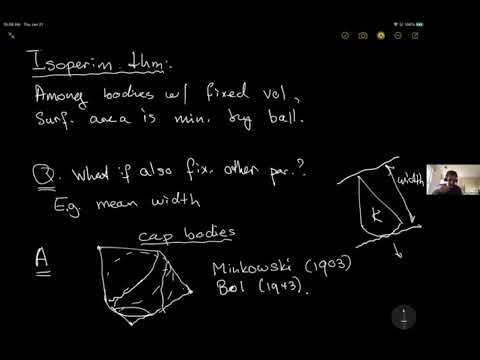 10:08 AM Thu Jan 21
Isoperim. thm:
Among bodies w/ fixed vol,
Surf. area is min. by ball.
Q. What if also fix. other par.?
E.g mean width
width
K
cap bodies
A
Minkowski (1903)
Bol (1943).